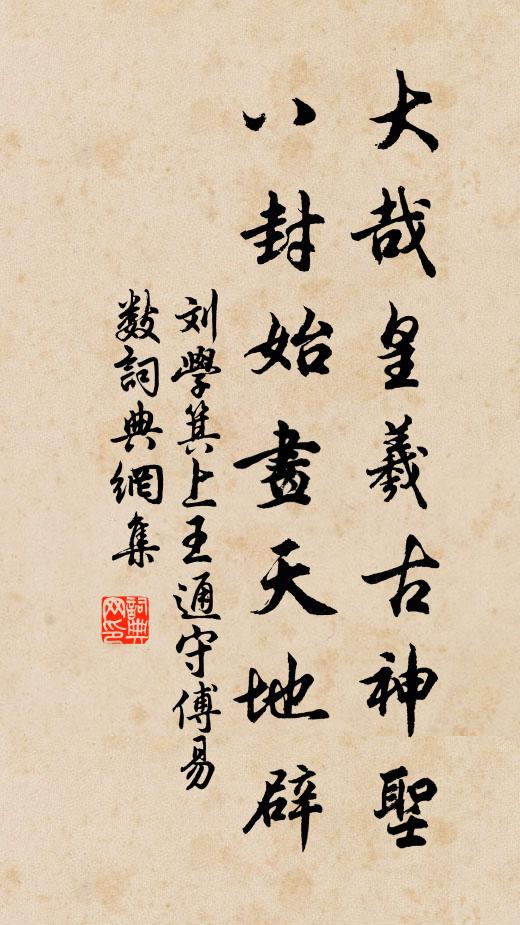 大哉皇羲古神聖
八封始畫天地辟
刘學箕上王通守傅易
數詞典網集
詞典网印